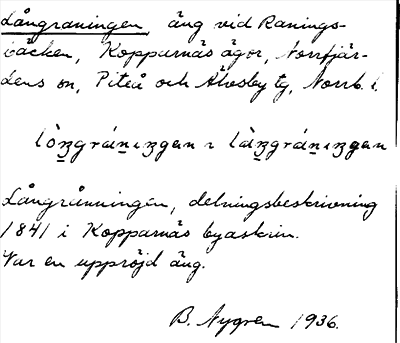 Långraningen, äng vid Ranings-
bäcken, Kopparnäs ägor, Norrfjär-
dens sn, Piteå och Älvsby tg, Norrb. l.
Långrånningen, delningsbeskrivning
1841 i Kopparnäs byaskrin.
Var en uppröjd äng.
B. Nygren 1936.